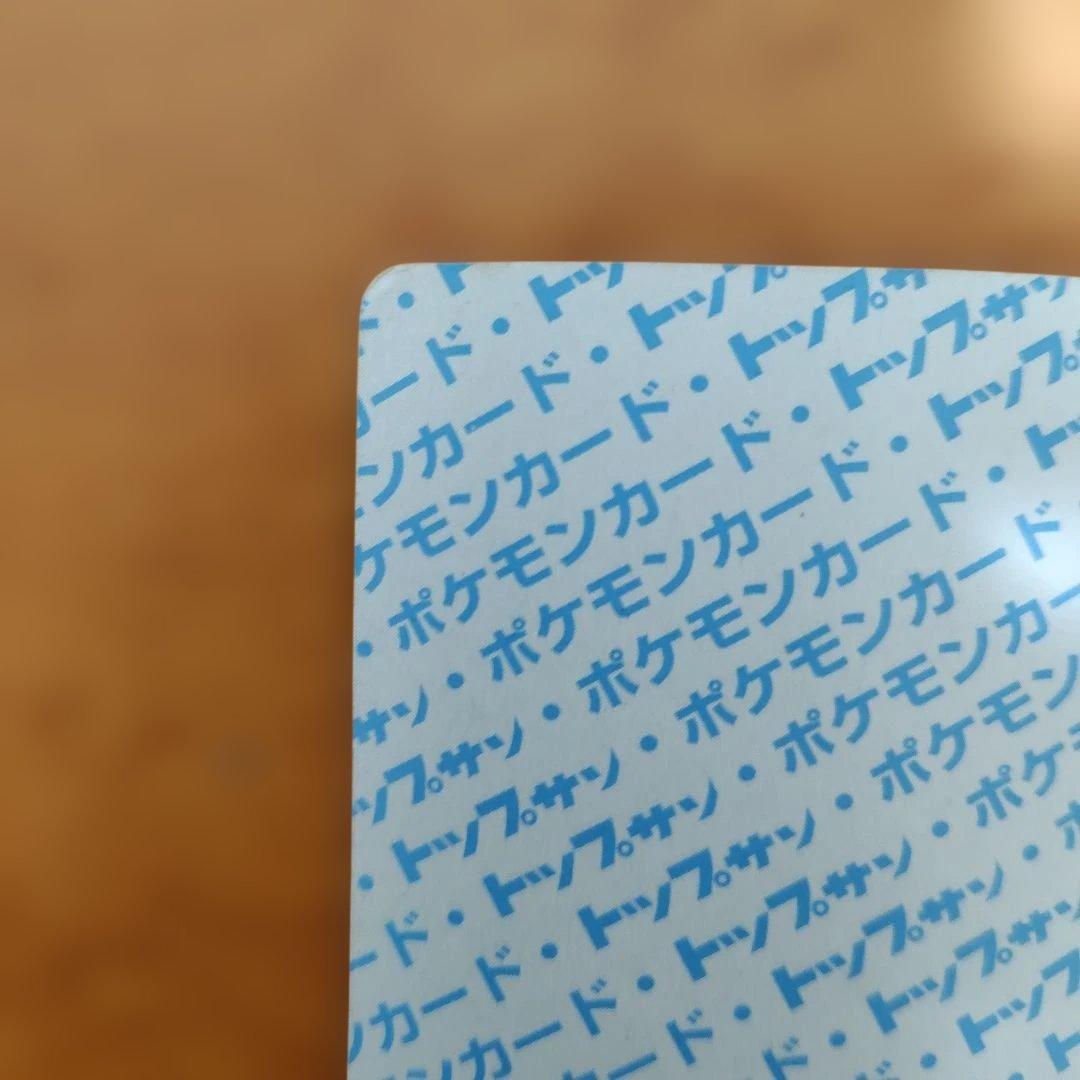 ド・ト
カード・トッ
ンカード・トップ
ケモンカード・トップサ
・ポケモンカード・トップサン
サン・ポケモンカード・トップ
ップサン・ポケモンカード・トッ
・トップサン・ポケモンカード
ード・トップサン・ポケモンカー
ンカード・トップサン・ポケモン
ンカード・トップサン・ポケ
ード・トップサン・ポ
ド・トップサン
・トップ
ト